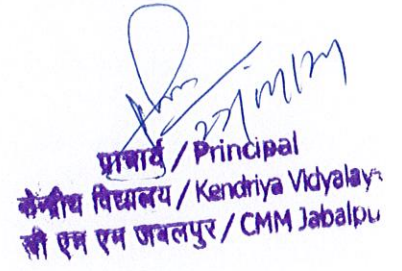 प्राचार्य / Principal
केन्द्रीय विद्यालय / Kendriya Vidyalaya
सी एम एम जबलपुर / CMM Jabalpu